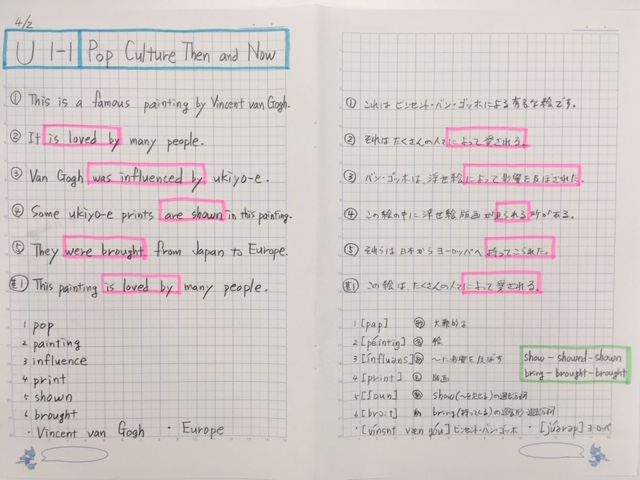 4/2
U 1-1 Pop Culture Then and Now
① This is a famous painting by Vincent van Gogh.
② It is loved by many people.
③ Van Gogh was influenced by ukiyo-e.
④ Some ukiyo-e prints are shown in this painting.
⑤ They were brought from Japan to Europe.
基1 This painting is loved by many people.
1 pop
2 painting
3 influence
4 print
5 shown
6 brought
・Vincent van Gogh ・Europe
① これは ビンセント・バン・ゴッホによる 有名な絵です。
② それは たくさんの人々によって愛される。
③ バン・ゴッホは、浮世絵によって影響を及ぼされた。
④ この絵の中に 浮世絵版画が見られる所がある。
⑤ それらは 日本から ヨーロッパへ 持ってこられた。
基1 この絵は、たくさんの人々によって愛される。
1 [pap] 形 大衆的な
2 [péintiŋ] 名 絵
3 [influəns] 動 ～に影響を及ぼす
4 [print] 名 版画
5 [ʃoun] 動 show(～を見せる)の過去分詞
6 [brɔːt] 動 bring(持ってくる)の過去形・過去分詞
・[vinsnt væn góu] ビンセント・バン・ゴッホ ・[júərəp] ヨーロッパ
show - showed - shown
bring - brought - brought